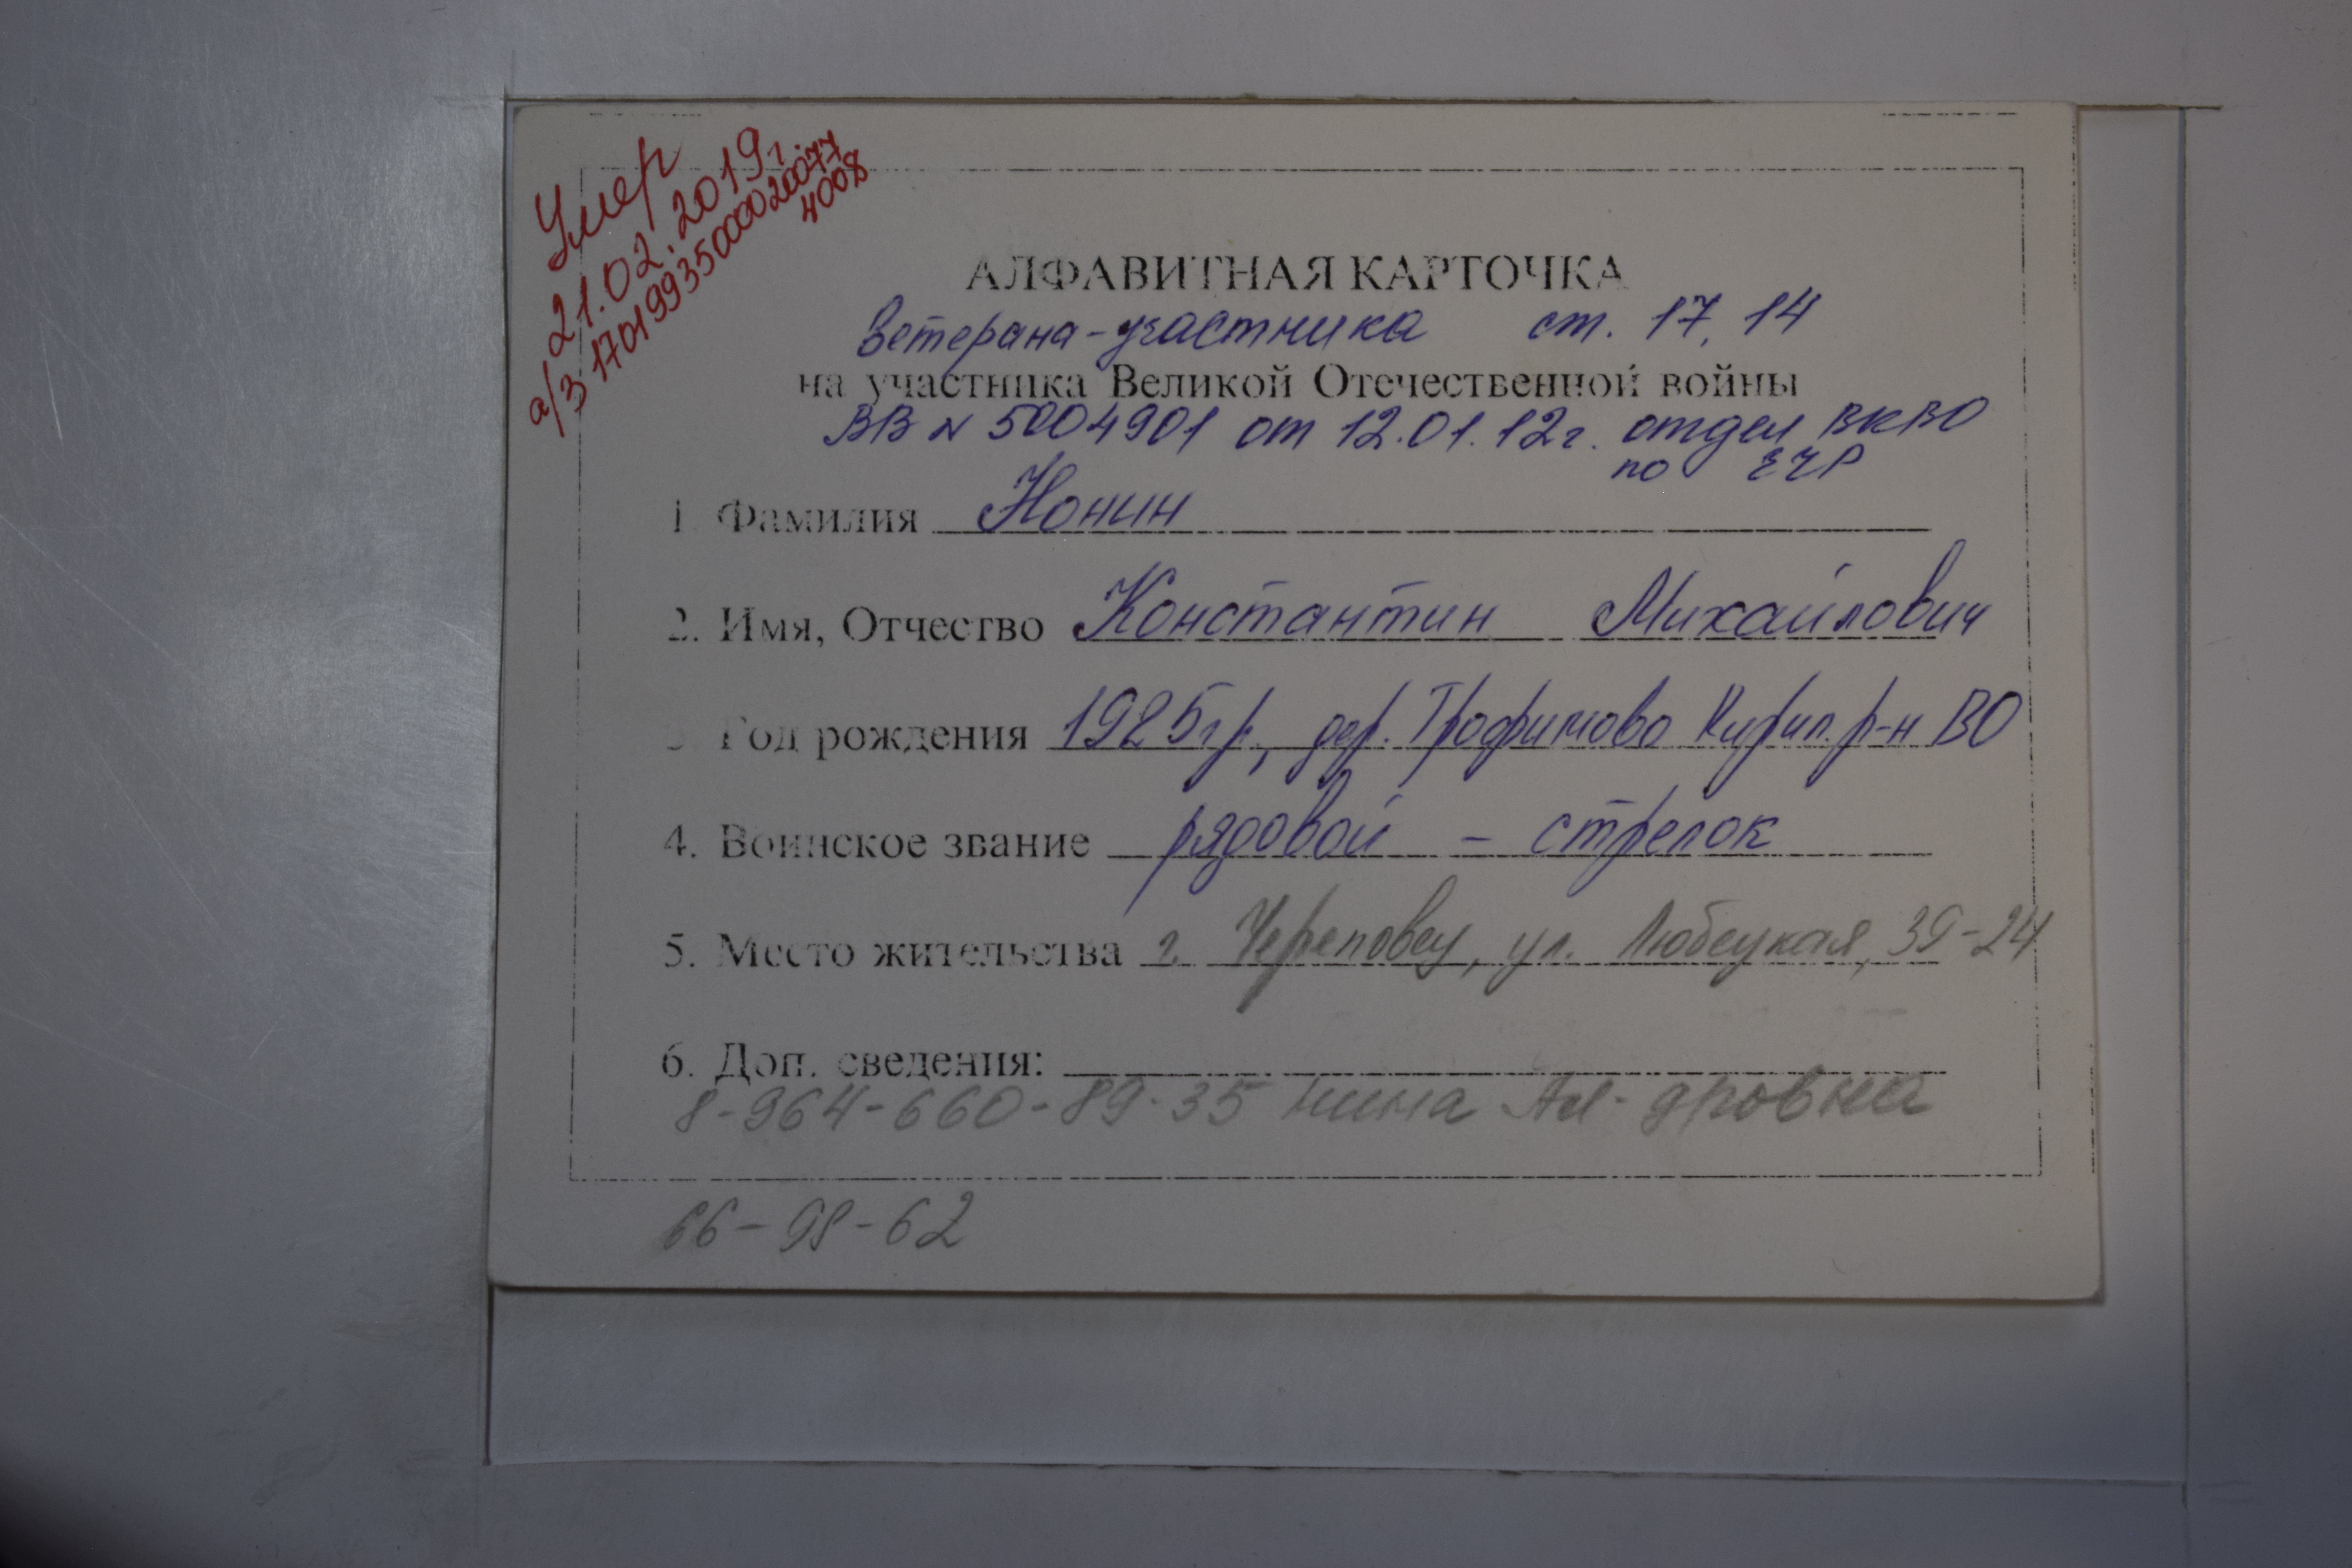 Умер
21.02.2019г.
а/з 17019935000020077
4008
АЛФАВИТНАЯ КАРТОЧКА
Ветерана-участника ст. 17, 14
на участника Великой Отечественной войны
ВВ № 5004901 от 12.01.12г. отдел ВКВО
по
1. Фамилия Нонин
2. Имя, Отчество Константин Михайлович
3. Год рождения 1925гр, дер. Трофимово Кирил. р-н ВО
4. Воинское звание рядовой - стрелок
5. Место жительства г. Череповец, ул. Любецкая, 39-24
6. Доп. сведения:
8-964-660-89-35 Нина Ал-дровна
66-98-62